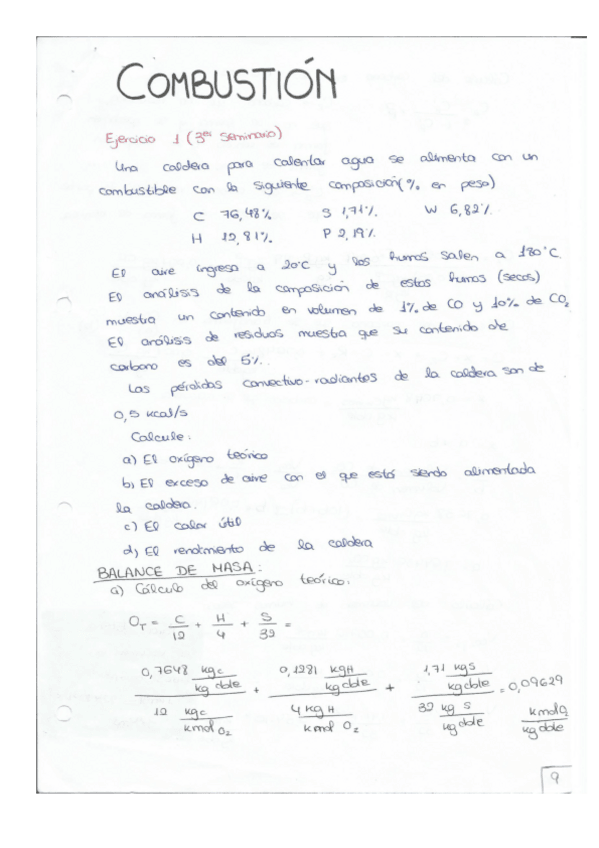 COMBUSTIÓN
Ejercicio 1 (3er Seminario)
Una caldera para calentar agua se alimenta con un
combustible con la siguiente composición (% en peso)
C 76,48% S 1,71% W 6,82%
H 12,81% P 2,19%
El aire ingresa a 20°C y los humos salen a 180°C.
El análisis de la composición de estos humos (secos)
muestra un contenido en volumen de 1% de CO y 10% de CO2
El análisis de residuos muestra que su contenido de
carbono es del 5%.
Las pérdidas convectivo-radiantes de la caldera son de
0,5 kcal/s
Calcule:
a) El oxígeno teórico
b) El exceso de aire con el que está siendo alimentada
la caldera.
c) El calor útil
d) El rendimiento de la caldera
BALANCE DE MASA:
a) Cálculo del oxígeno teórico.
OT = C/12 + H/4 + S/32 =
0,7648 kgc/kg cble + 0,1281 kgH/kg cble + 1,71 kg S/kg cble = 0,09629 kmol O/kg cble
12 kgc/kmol O2 4 kg H/kmol O2 32 kg S/kg cble
9